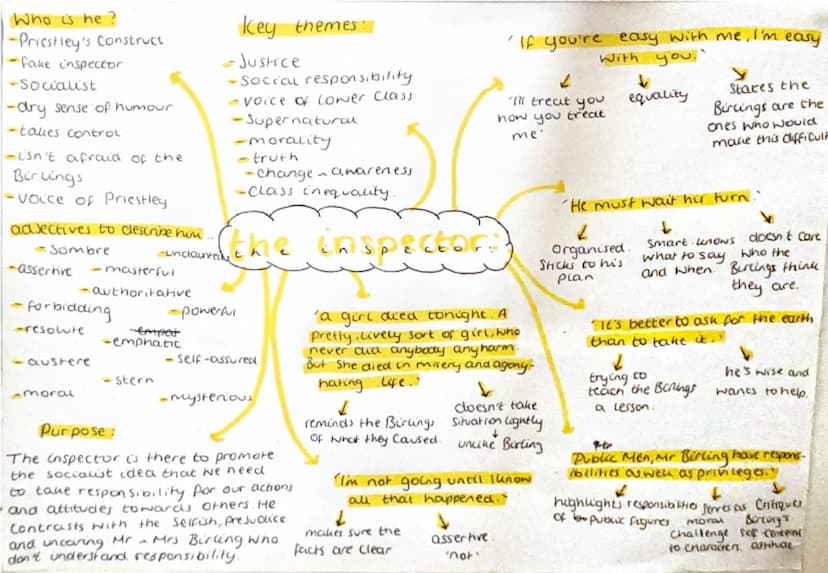 Who is he?
- Priestley's Construct
- fake inspector
- Socialist
- dry sense of humour
- takes control
- isn't afraid of the
Birlings
- voice of Priestley
Key themes:
- Justice
- Social responsibility
- voice of lower Class
- Supernatural
- morality
- truth
- change + awareness
- Class inequality.
'If you're easy with me, I'm easy
with you.'
'I'll treat you
how you treat
me'
equality
States the
Birlings are the
ones who would
make this difficult
the inspector:
the inspector:
'He must wait his turn.'
organised.
Sticks to his
plan
smart-knows
what to say
and when.
doesn't care
who the
Birlings think
they are.
adjectives to describe him..
- Sombre
- undaunted
- assertive
- masterful
- authoritative
- forbidding
- powerful
- resolute
empat
- emphatic
- austere
- self-assured
- stern
- moral
- mysterious
'a girl died tonight. A
pretty, lively sort of girl, who
never did anybody any harm.
But she died in misery and agony-
hating life.'
reminds the Birlings
of what they caused.
doesn't take
situation lightly
unlike Birling
'It's better to ask for the earth
than to take it.'
trying to
teach the Birlings
a lesson.
he's wise and
wants to help.
Purpose:
The inspector is there to promote
the socialist idea that we need
to take responsibility for our actions
and attitudes towards others. He
contrasts with the selfish, prejudice
and uncaring Mr + Mrs Birling who
don't understand responsibility.
'I'm not going until I know
all that happened.'
makes sure the
facts are clear
assertive
'not'
'Public Men, Mr Birling have respons-
ibilities as well as privileges.'
highlights responsibilities
of public figures
serves as
moral
challenge
to characters.
Critiques
Birling's
self-centered
attitude